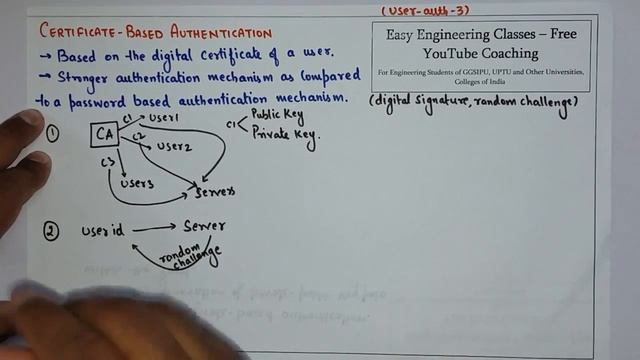 (user-auth-3)
CERTIFICATE-BASED AUTHENTICATION
→ Based on the digital certificate of a user.
→ Stronger authentication mechanism as compared
to a password based authentication mechanism.
Easy Engineering Classes – Free
YouTube Coaching
For Engineering Students of GGSIPU, UPTU and Other Universities,
Colleges of India
(digital signature, random challenge)
① CA
C1 user1
C2 user2
C3 user3
Servers
C1 < Public Key
Private Key.
② User id → Server
random
challenge